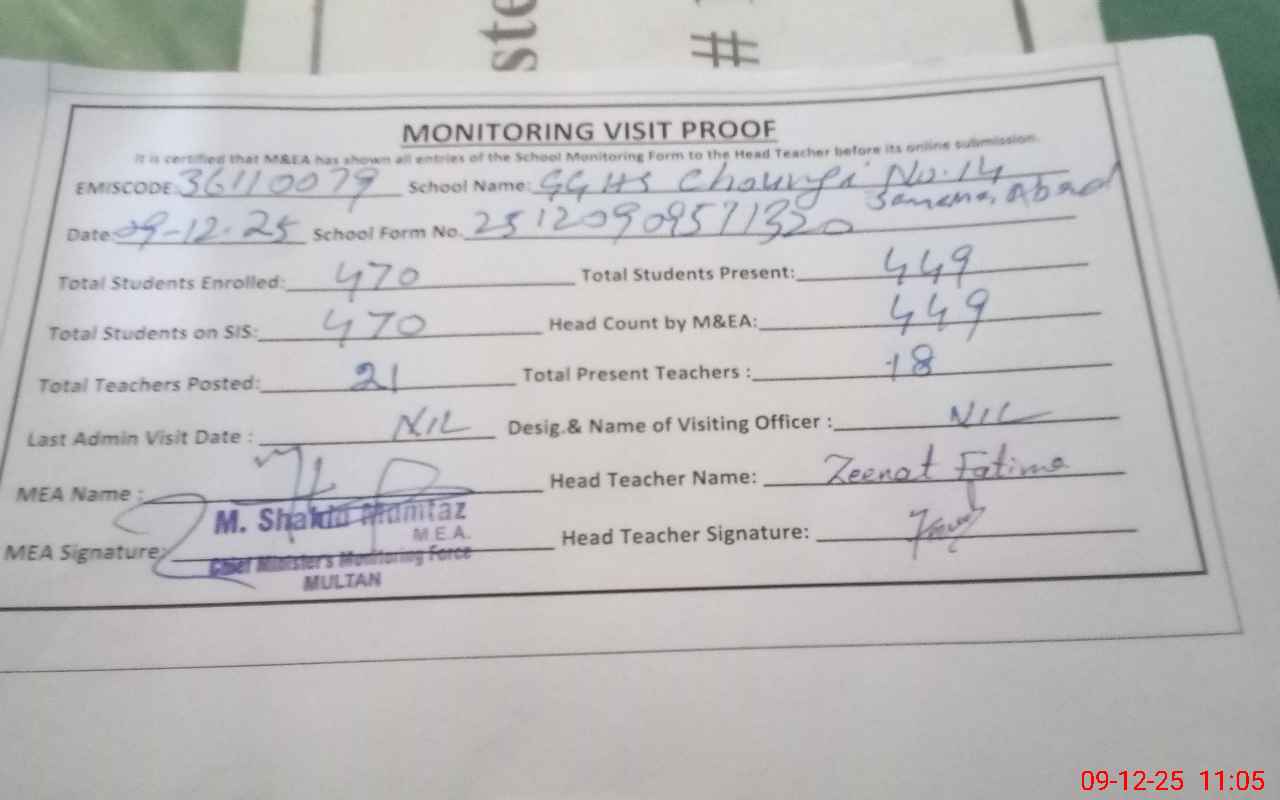 ste
#
MONITORING VISIT PROOF
It is certified that M&EA has shown all entries of the School Monitoring Form to the Head Teacher before its online submission.
EMISCODE: 36110079 School Name: GGHS Choungi No.14
Samana, Abad
Date: 09-12-25 School Form No. 2512090957 1320
Total Students Enrolled: 470 Total Students Present: 449
Total Students on SIS: 470 Head Count by M&EA: 449
Total Teachers Posted: 21 Total Present Teachers : 18
Last Admin Visit Date : NIL Desig.& Name of Visiting Officer : NIL
MEA Name : Head Teacher Name: Zeenat Fatima
M. Shahid Mumtaz
M.E.A.
MEA Signature: Head Teacher Signature:
Chief Minister's Monitoring Force
MULTAN
09-12-25 11:05